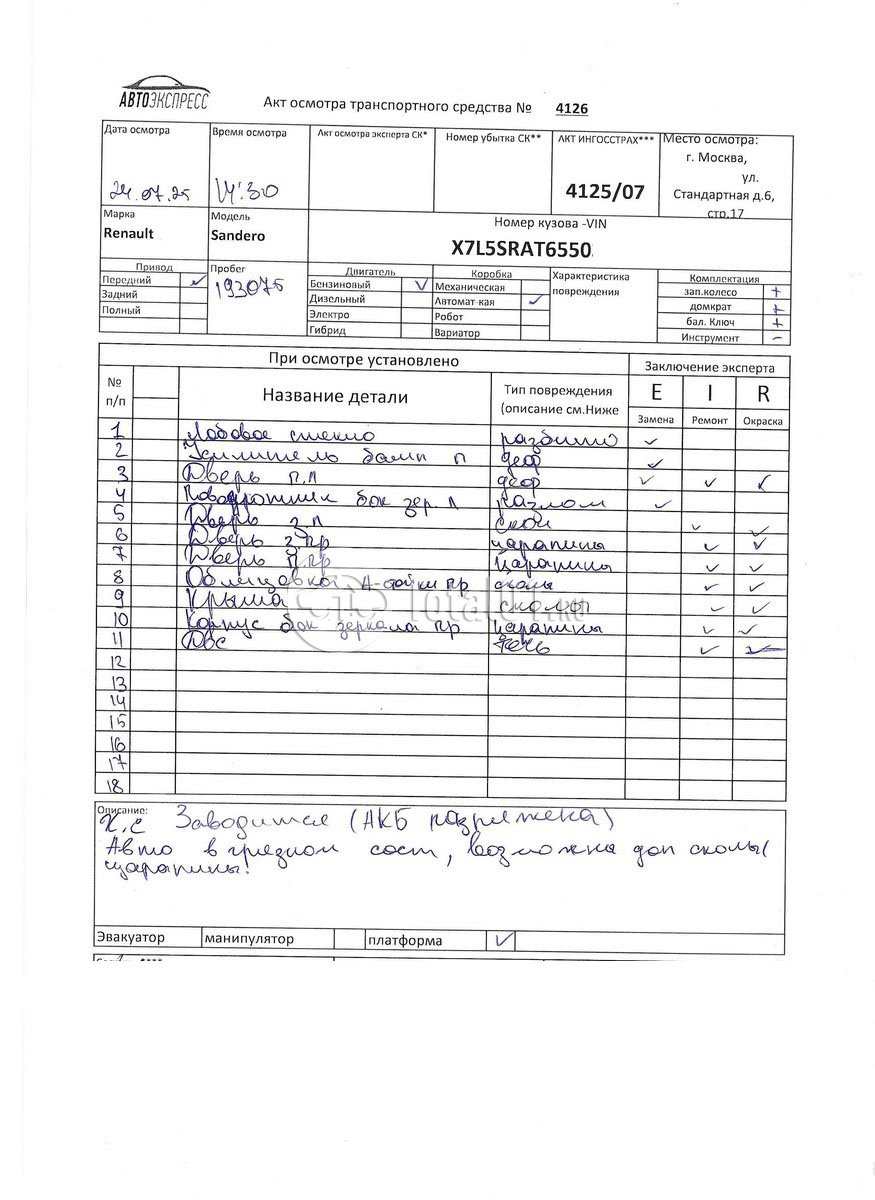 АВТОЭКСПРЕСС
Акт осмотра транспортного средства № 4126
Дата осмотра
24.07.25
Время осмотра
14:30
Акт осмотра эксперта СК*
Номер убытка СК**
АКТ ИНГОССТРАХ***
4125/07
Место осмотра:
г. Москва,
ул.
Стандартная д.6,
стр.17
Марка
Renault
Модель
Sandero
Номер кузова -VIN
X7L5SRAT6550
Привод
Передний ✓
Задний
Полный
Пробег
193075
Двигатель
Бензиновый V
Дизельный
Электро
Гибрид
Коробка
Механическая
Автомат-кая ✓
Робот
Вариатор
Характеристика
повреждения
Комплектация
зап.колесо +
домкрат +
бал. Ключ +
Инструмент -
При осмотре установлено
Заключение эксперта
№
п/п
Название детали
Тип повреждения
(описание см.Ниже
E I R
Замена Ремонт Окраска
1 Лобовое стекло разбито ✓
2 Усилитель бамп п деф ✓
3 Дверь п.л деф ✓ ✓ ✓
4 бок зер. л разлом ✓
5 Дверь з.л скол ✓ ✓
6 Дверь з.пр царапины ✓ ✓
7 Дверь п.пр царапины ✓ ✓
8 Облицовка А-стойки пр сколы ✓ ✓
9 Крыша сколы ✓ ✓
10 Корпус бок зеркала пр царапины ✓ ✓
11 Двс течь ✓ ✓
12
13
14
15
16
17
18
TotalU1.RU
Описание:
Заводится (АКБ разряжена)
Авто в грязном сост, возможна доп сколы/
царапины!
Эвакуатор манипулятор платформа V